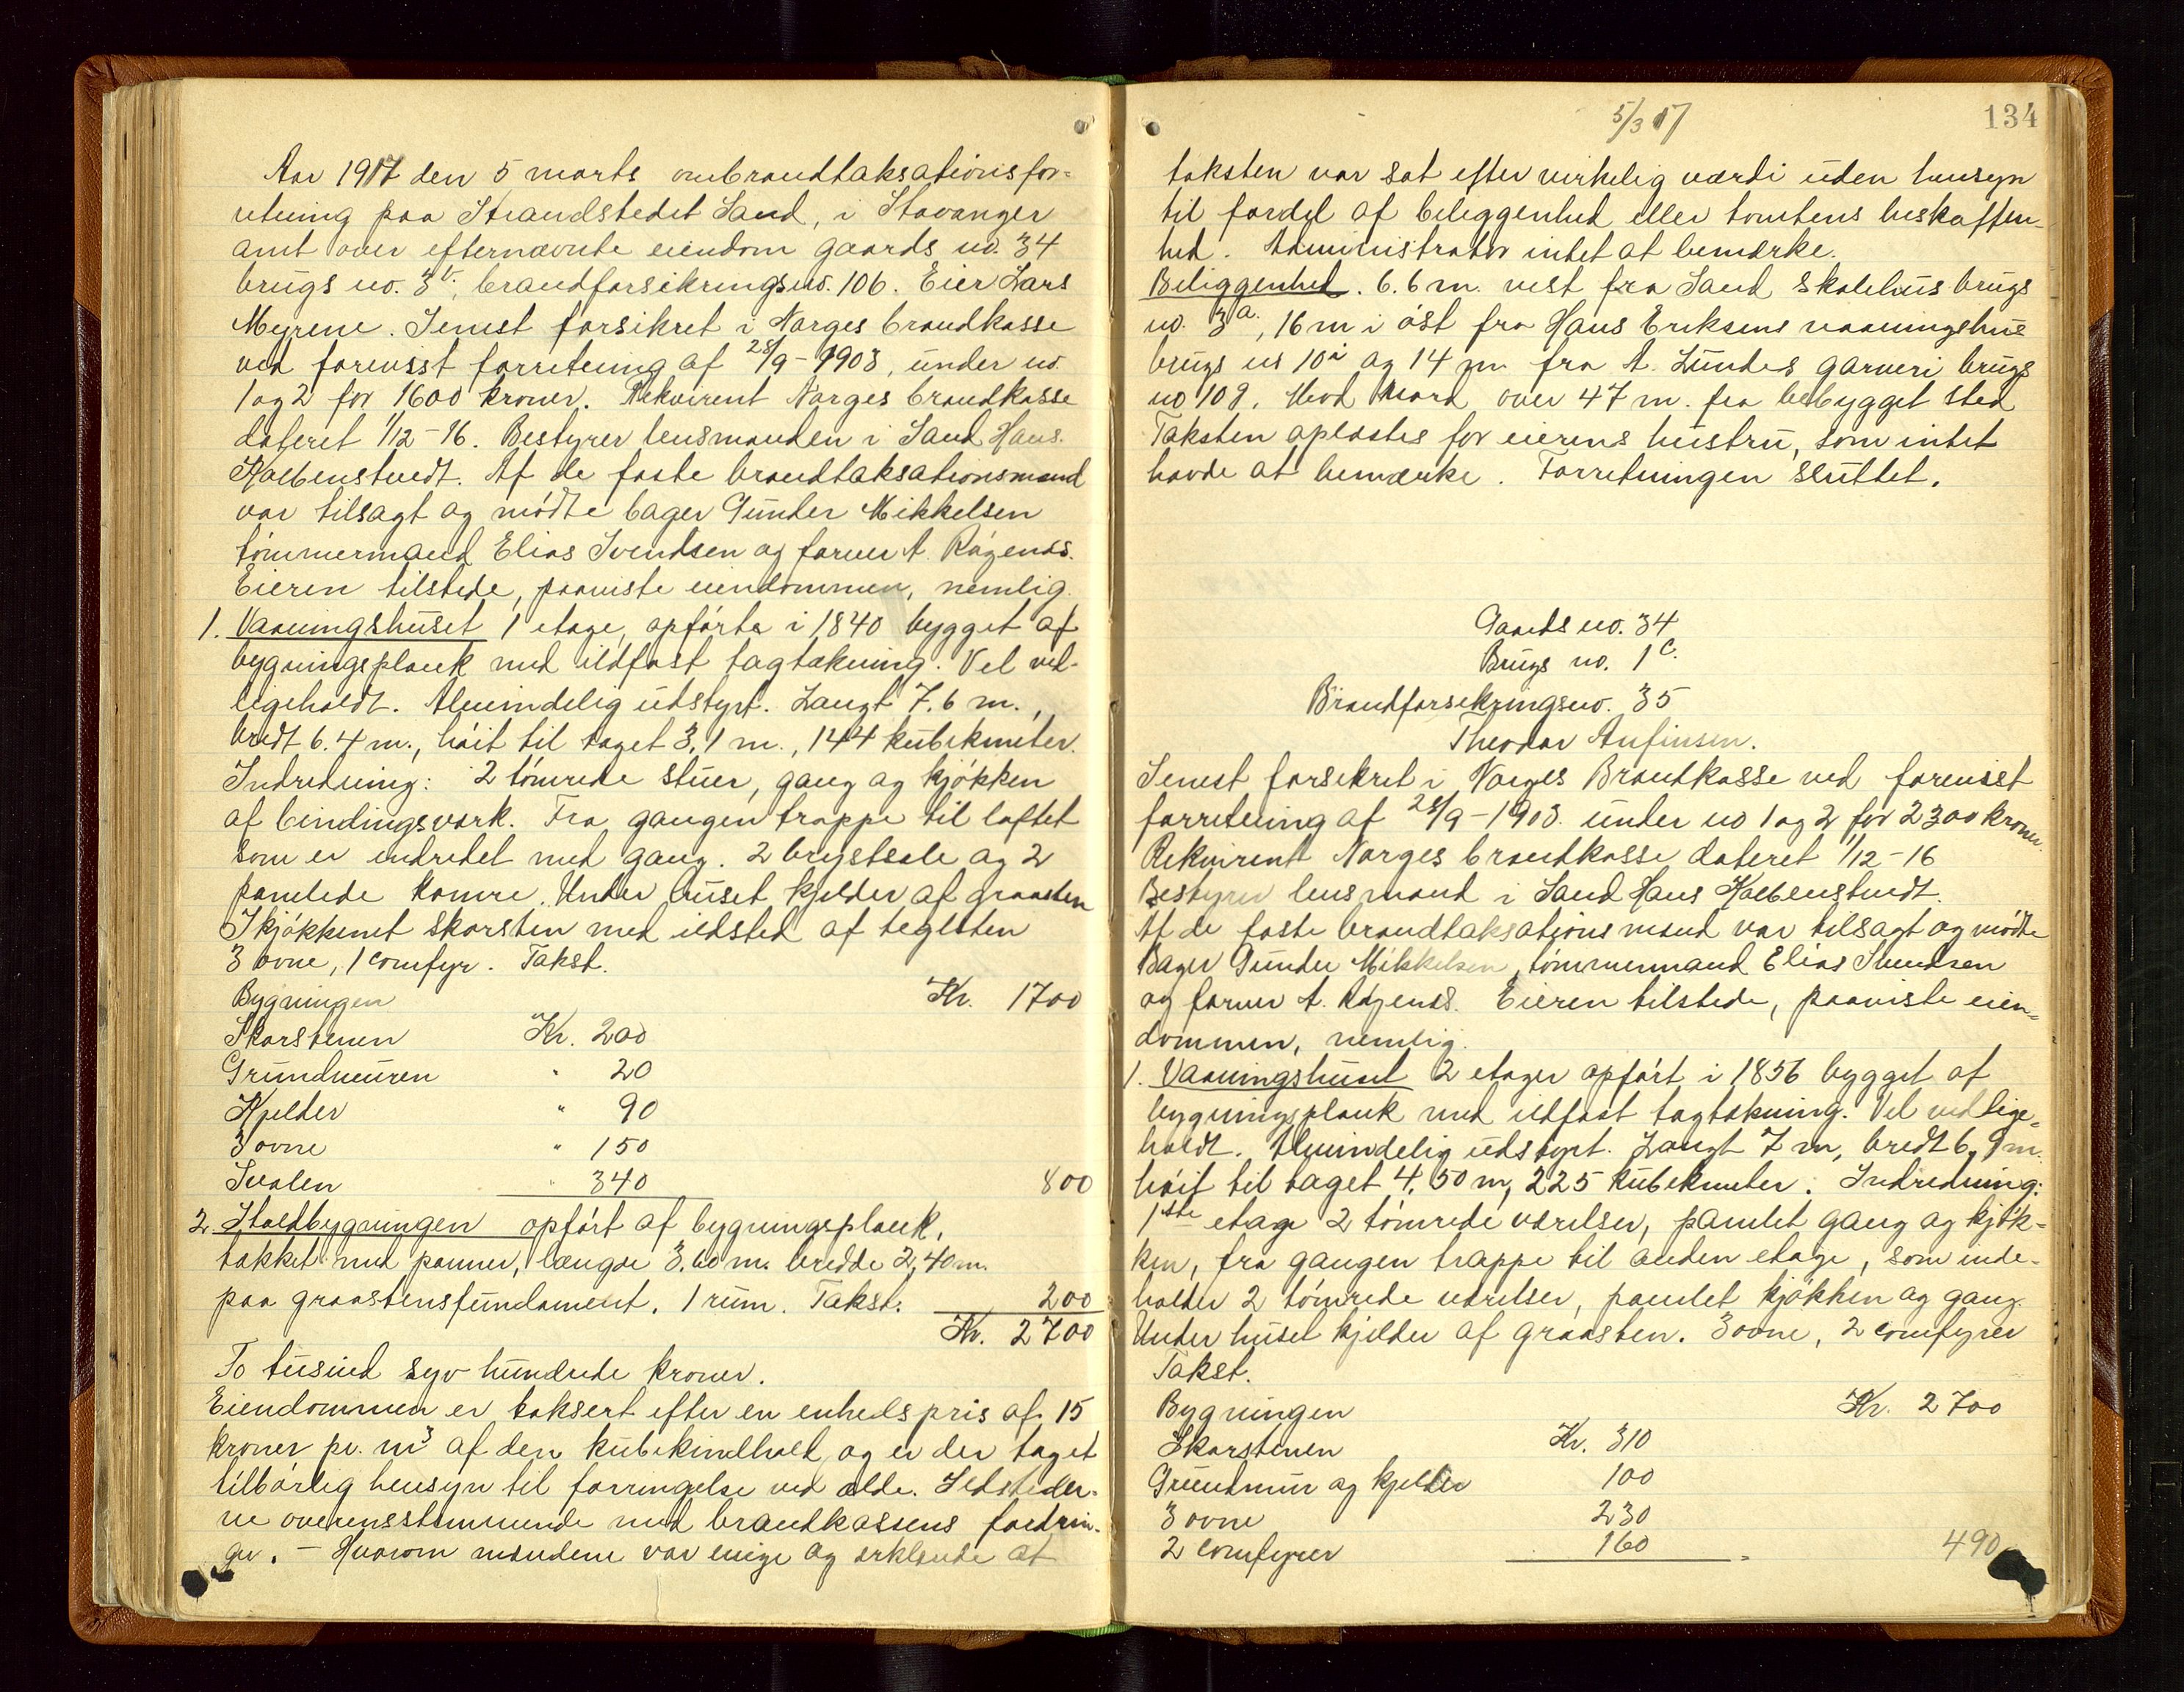 Aar 1917 den 5 marts ombrandtaksationsfor=
retning paa Strandstedet Sand, i Stavanger
amt over efternævnte eiendom gaards no. 34
brugs no. 3 brandforsikringsno. 106. Eier Lars
Myrene. Senest forsikret i Norges brandkasse
ved forenist forretning af 28/9-1903, under no.
1 og 2 for 1600 kroner. Rekvirent Norges brandkasse
dateret 1/12-16. Bestyrer lensmanden i Sand Hans
Kolbenstvedt. Af de faste brandtaksationsmænd
var tilsagt og mødte bager Gunder Mikkelsen
tømmermand Elias Svendsen og farver A. Røgenæs.
Eieren tilstede, paaviste eiendommen, nemlig.
1. Vaaningshuset 1 etage, opførte i 1840 bygget af
bygningsplank med ildfast tagtækning. Vel ved-
ligeholdt. Almindelig udstyrt. Langt 7.6 m.,
bredt 6.4 m., høit til taget 3.1 m., 144 kubikmeter.
Indredning: 2 tømrede stuer, gang og kjøkken
af bindingsverk. Fra gangen trappe til loftet
som er indredet med gang. 2 brystsale og 2
panelede kamre. Under huset kjelder af graasten
I kjøkkenet skorsten med ildsted af teglsten
3 ovne, 1 comfyr. Takst.
Bygningen Kr. 1700
Skorstenen Kr. 200
Grundmuren " 20
Kjelder " 90
3 ovne " 150
Svalen " 340 800
2. Staldbygningen opført af bygningsplank,
tækket med panner, længde 3.60 m. bredde 2,40 m.
paa graastensfundament. 1 rum. Takst. 200
Kr. 2700
To tusind syv hundrede kroner.
Eiendommen er taksert efter en enhedspris af 15
kroner pr. m3 af den kubikindhold og er der taget
tilbørlig hensyn til forringelse ved ælde. Ildsteder-
ne overensstemmende med brandkassens fordrin-
ger. - Hvorom mændene var enige og erklærede at
5/3 17
134
taksten var sat efter virkelig værdi uden hensyn
til fordel af beliggenhed eller tomtens beskaffen-
hed. Administrator intet at bemærke.
Beliggenhed. 6.6 m. vest fra Sand skolehus brugs
no. 3a, 16 m i øst fra Hans Eriksens vaaningshus
brugs no 10 og 14 m fra A. Lundes garveri brugs
no 108. Mod nord over 47 m. fra bebygget sted
Taksten oplæstes for eierens hustru, som intet
havde at bemærke. Forretningen sluttet.
Gaards no. 34
Brugs no. 1c.
Brandforsikringsno. 35
Theodor Anfinsen.
Senest forsikret i Norges Brandkasse ved forenist
forretning af 28/9-1903. under no 1 og 2 for 2300 kroner.
Rekvirent Norges brandkasse, dateret 1/12-16
Bestyrer lensmand i Sand Hans Kolbenstvedt.
Af de faste brandtaksationsmænd var tilsagt og mødte
Bager Gunder Mikkelsen, tømmermand Elias Svendsen
og farver A. Røgenæs. Eieren tilstede, paaviste eien=
dommen, nemlig.
1. Vaaningshuset 2 etager opført i 1856 bygget af
bygningsplank med ildfast tagtækning. Vel vedlige=
holdt. Almindelig udstyrt. Langt 7 m, bredt 6,9 m.
høit til taget 4,50 m, 225 kubikmeter. Indredning:
1ste etage 2 tømrede værelser, panelet gang og kjøk-
ken, fra gangen trappe til anden etage, som inde-
holder 2 tømrede værelser, panelet kjøkken og gang.
Under huset kjelder af graasten. 3 ovne, 2 comfyrer
Takst.
Bygningen Kr. 2700
Skorstenen Kr. 310
Grundmur og kjelder 100
3 ovne 230
2 comfyrer 160 490